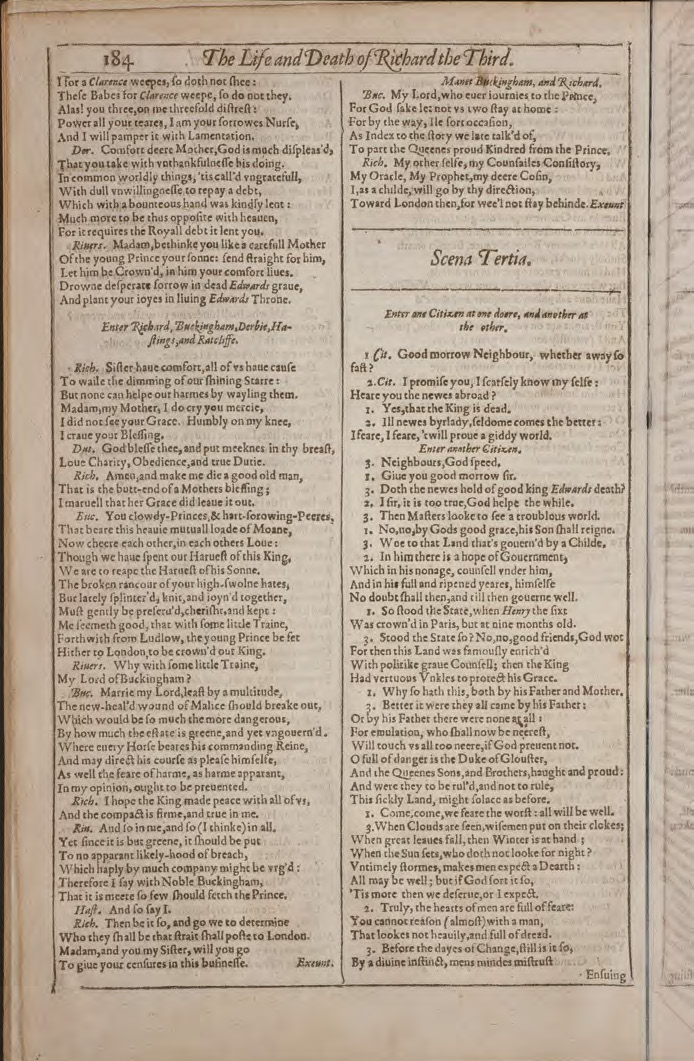 184 The Life and Death of Richard the Third.
I for a Clarence weepes, so doth not shee:
These Babes for Clarence weepe, so do not they.
Alas! you three, on me threefold distrest:
Power all your teares, I am your sorrowes Nurse,
And I will pamper it with Lamentation.
Dor. Comfort deere Mother, God is much displeas'd,
That you take with vnthankfulnesse his doing.
In common worldly things, 'tis call'd vngratefull,
With dull vnwillingnesse to repay a debt,
Which with a bounteous hand was kindly lent:
Much more to be thus opposite with heauen,
For it requires the Royall debt it lent you.
Riuers. Madam, bethinke you like a carefull Mother
Of the young Prince your sonne: send straight for him,
Let him be Crown'd, in him your comfort liues.
Drowne desperate sorrow in dead Edwards graue,
And plant your ioyes in liuing Edwards Throne.
Enter Richard, Buckingham, Derbie, Ha-
stings, and Ratcliffe.
Rich. Sister haue comfort, all of vs haue cause
To waile the dimming of our shining Starre:
But none can helpe our harmes by wayling them.
Madam, my Mother, I do cry you mercie,
I did not see your Grace. Humbly on my knee,
I craue your Blessing.
Dut. God blesse thee, and put meeknes in thy breast,
Loue Charity, Obedience, and true Dutie.
Rich. Amen, and make me die a good old man,
That is the butt-end of a Mothers blessing;
I maruell that her Grace did leaue it out.
Buc. You clowdy-Princes, & hart-sorowing-Peeres,
That beare this heauie mutuall loade of Moane,
Now cheere each other, in each others Loue:
Though we haue spent our Haruest of this King,
We are to reape the Haruest of his Sonne.
The broken rancour of your high-swolne hates,
But lately splinter'd, knit, and ioyn'd together,
Must gently be preseru'd, cherisht, and kept:
Me seemeth good, that with some little Traine,
Forthwith from Ludlow, the young Prince be fet
Hither to London, to be crown'd our King.
Riuers. Why with some little Traine,
My Lord of Buckingham?
Buc. Marrie my Lord, least by a multitude,
The new-heal'd wound of Malice should breake out,
Which would be so much the more dangerous,
By how much the estate is greene, and yet vngouern'd.
Where euery Horse beares his commanding Reine,
And may direct his course as please himselfe,
As well the feare of harme, as harme apparant,
In my opinion, ought to be preuented.
Rich. I hope the King made peace with all of vs,
And the compact is firme, and true in me.
Riu. And so in me, and so (I thinke) in all.
Yet since it is but greene, it should be put
To no apparant likely-hood of breach,
Which haply by much company might be vrg'd:
Therefore I say with Noble Buckingham,
That it is meete so few should fetch the Prince.
Hast. And so say I.
Rich. Then be it so, and go we to determine
Who they shall be that strait shall poste to London.
Madam, and you my Sister, will you go
To giue your censures in this businesse. Exeunt.
Manet Buckingham, and Richard.
Buc. My Lord, who euer iournies to the Prince,
For God sake let not vs two stay at home:
For by the way, Ile sort occasion,
As Index to the story we late talk'd of,
To part the Queenes proud Kindred from the Prince.
Rich. My other selfe, my Counsailes Consistory,
My Oracle, My Prophet, my deere Cosin,
I, as a childe, will go by thy direction,
Toward London then, for wee'l not stay behinde. Exeunt
Scena Tertia.
Enter one Citizen at one doore, and another at
the other.
1 Cit. Good morrow Neighbour, whether away so
fast?
2. Cit. I promise you, I scarsely know my selfe:
Heare you the newes abroad?
1. Yes, that the King is dead.
2. Ill newes byrlady, seldome comes the better:
I feare, I feare, 'twill proue a giddy world.
Enter another Citizen.
3. Neighbours, God speed.
1. Giue you good morrow sir.
3. Doth the newes hold of good king Edwards death?
2. I sir, it is too true, God helpe the while.
3. Then Masters looke to see a troublous world.
1. No, no, by Gods good grace, his Son shall reigne.
3. Woe to that Land that's gouern'd by a Childe.
2. In him there is a hope of Gouernment,
Which in his nonage, counsell vnder him,
And in his full and ripened yeares, himselfe
No doubt shall then, and till then gouerne well.
1. So stood the State, when Henry the sixt
Was crown'd in Paris, but at nine months old.
3. Stood the State so? No, no, good friends, God wot
For then this Land was famously enrich'd
With politike graue Counsell; then the King
Had vertuous Vnkles to protect his Grace.
1. Why so hath this, both by his Father and Mother.
3. Better it were they all came by his Father:
Or by his Father there were none at all:
For emulation, who shall now be neerest,
Will touch vs all too neere, if God preuent not.
O full of danger is the Duke of Glouster,
And the Queenes Sons, and Brothers, haught and proud:
And were they to be rul'd, and not to rule,
This sickly Land, might solace as before.
1. Come, come, we feare the worst: all will be well.
3. When Clouds are seen, wisemen put on their clokes;
When great leaues fall, then Winter is at hand;
When the Sun sets, who doth not looke for night?
Vntimely stormes, makes men expect a Dearth:
All may be well; but if God sort it so,
'Tis more then we deserue, or I expect.
2. Truly, the hearts of men are full of feare:
You cannot reason (almost) with a man,
That lookes not heauily, and full of dread.
3. Before the dayes of Change, still is it so,
By a diuine instinct, mens mindes mistrust
Ensuing